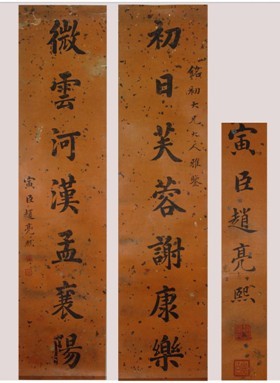 銘初大兄大人雅鑒
初日芙蓉謝康樂
微雲河漢孟襄陽
寅臣趙亮熙
寅臣趙亮熙